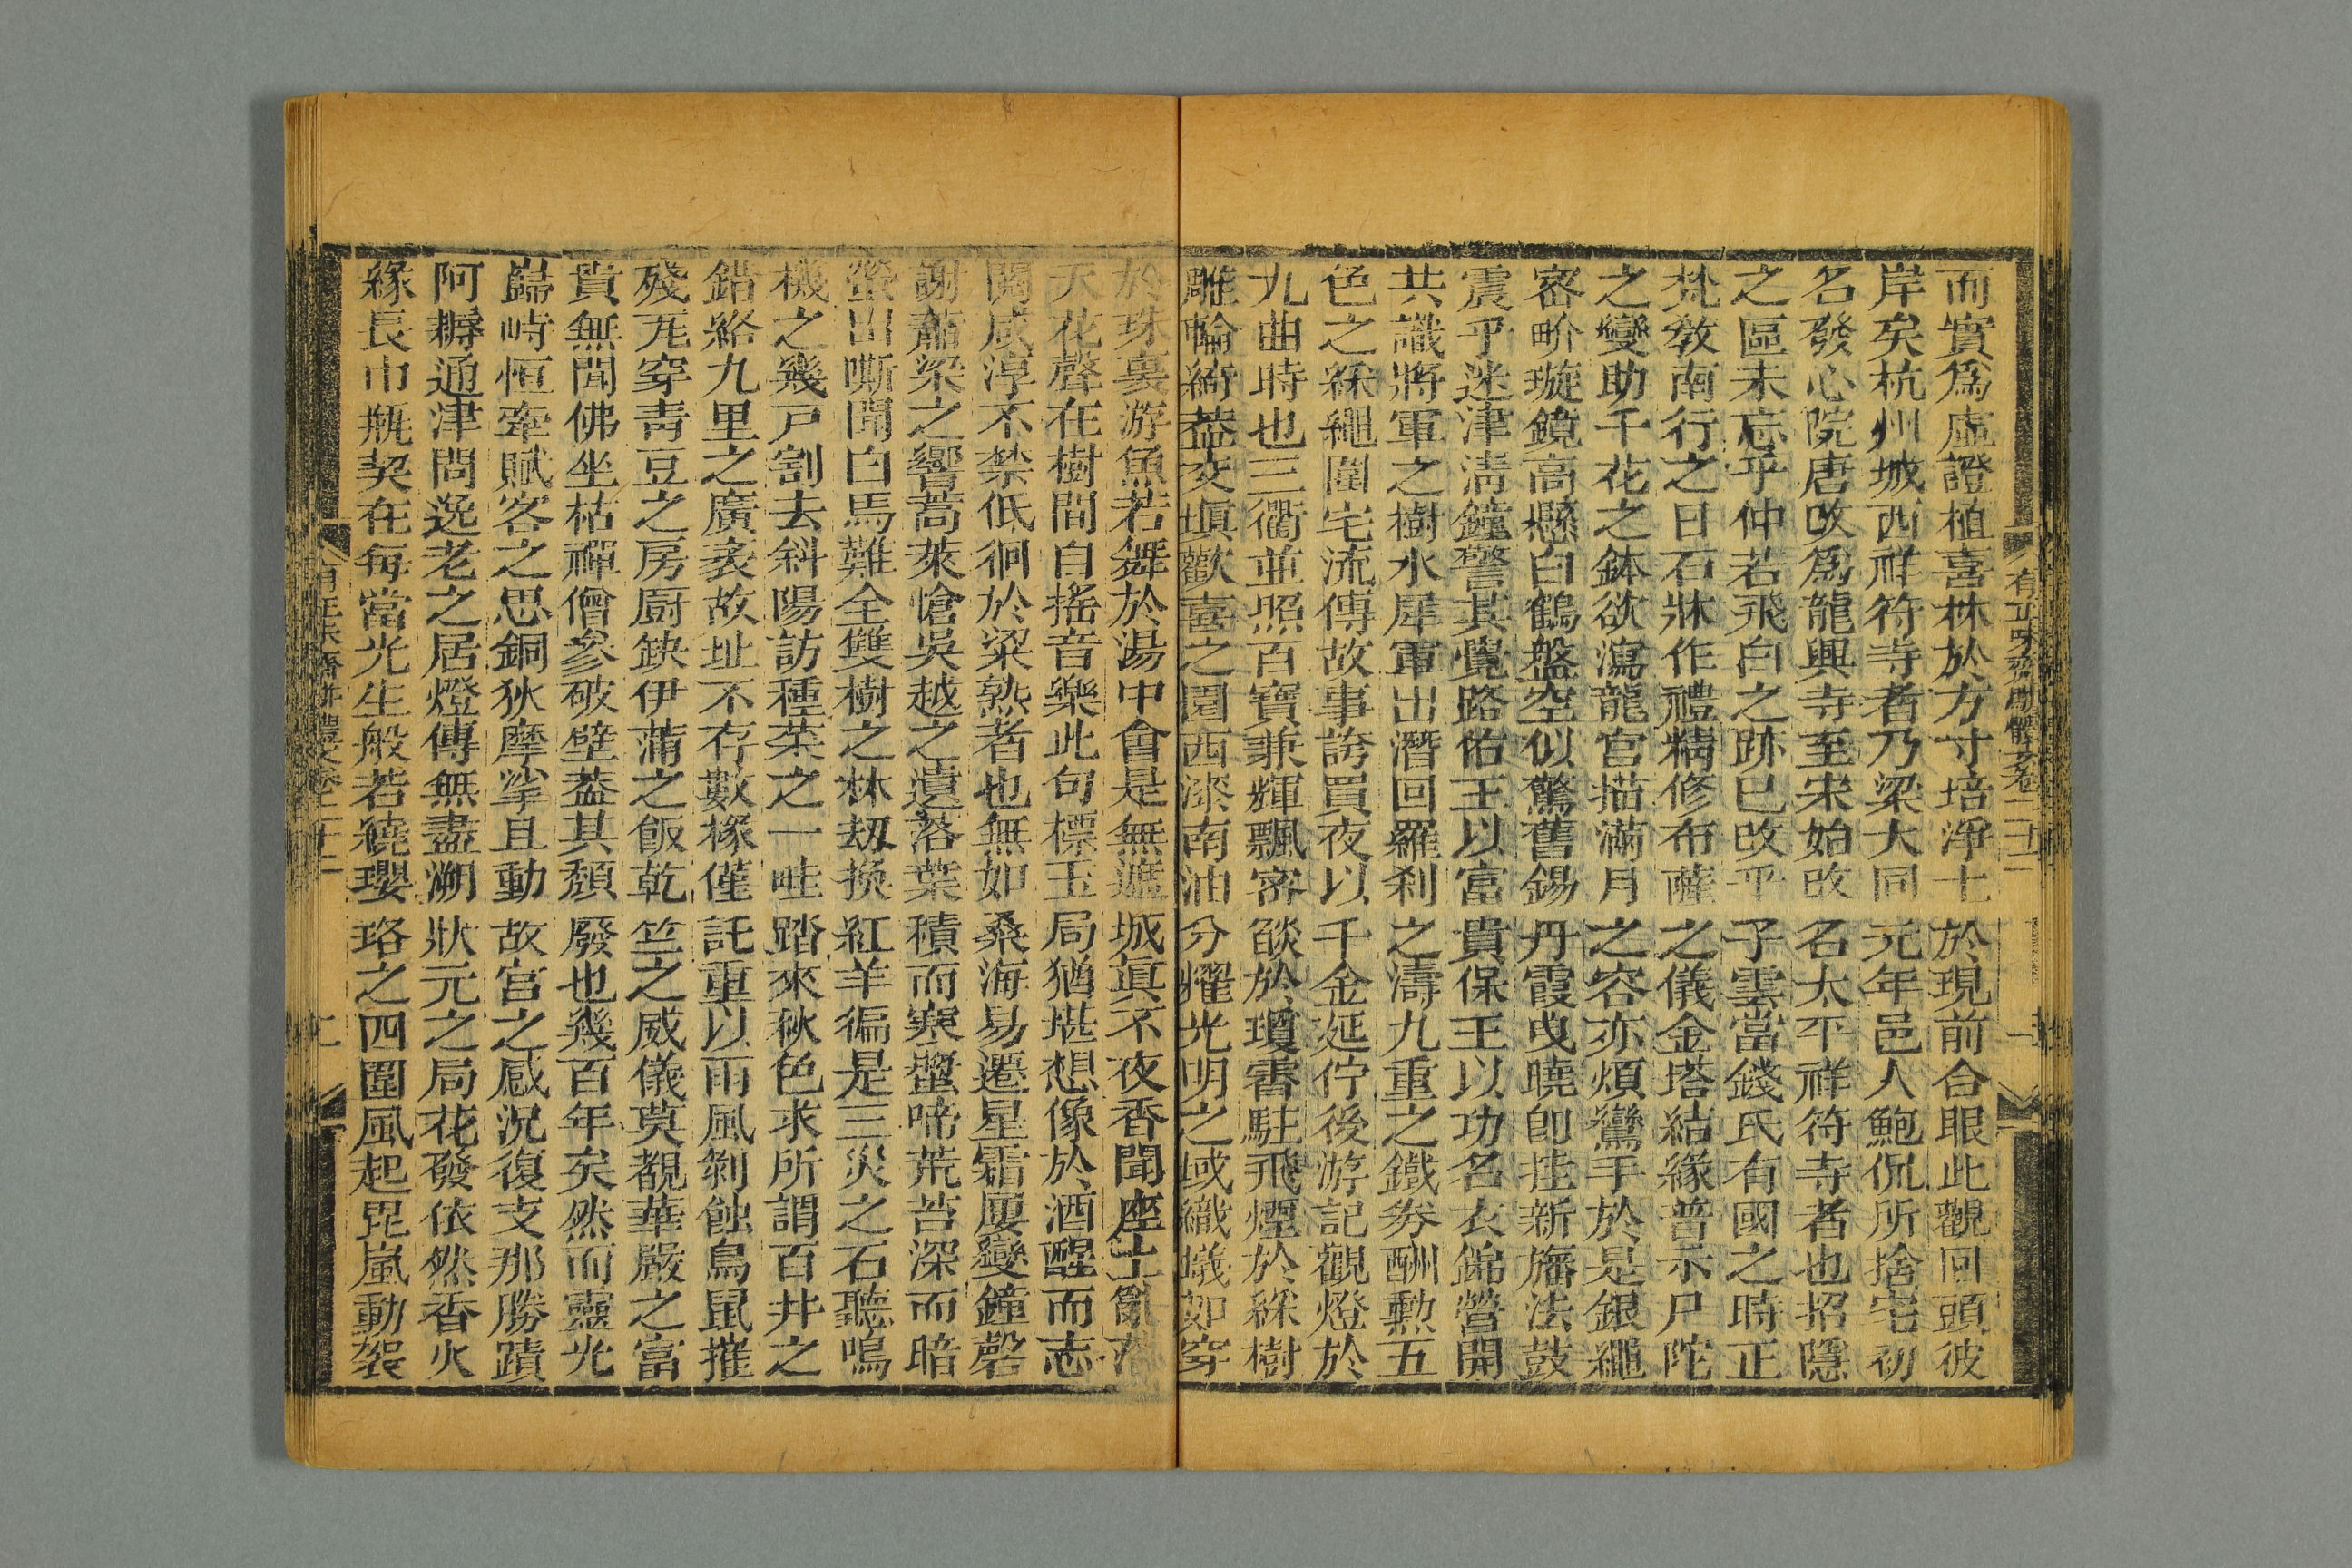 而實爲虛證植喜林於方寸培淨土於現前合眼此觀回頭彼
岸矣杭州城西祥符寺者乃梁大同元年邑人鮑侃所捨宅初
名發心院唐改爲龍興寺至宋始改名太平祥符寺者也招隱
之區未忘乎仲若飛白之跡已改乎子雲當錢氏有國之時正
梵教南行之日石牀作禮精修布薩之儀金塔結緣普示尸陀
之變助千花之鉢欲瀉龍宮描滿月之容亦煩鸞手於是銀繩
密畍璇鏡高懸白鶴盤空似驚舊錫丹霞曳曉卽挂新旛法鼓
震乎迷津淸鐘警其覺路佑王以富貴保王以功名衣錦營開
共識將軍之樹水犀軍出潛回羅刹之濤九重之鐵券酬勲五
色之綵繩圍宅流傳故事誇買夜以千金延佇後游記觀燈於
九曲時也三衢並照百寶兼輝飄密燄於瓊霤駐飛煙於綵樹
雕輪綺葢交塡歡喜之園西漆南油分耀光明之域織蟻如穿
於珠裏游魚若舞於湯中會是無遮城眞不夜香聞座上亂
天花聲在樹間自搖音樂此句標玉局猶堪想像於酒醒而志
閱咸淳不禁低徊於粱熟者也無如桑海易遷星霜屢變鐘磬
謝蕭梁之響蒿萊愴吳越之遺落葉積而寒蛩啼荒苔深而暗
螢出嘶聞白馬難全雙樹之林劫換紅羊徧是三災之石聽鳴
機之幾戸割去斜陽訪種菜之一畦踏來秋色求所謂百井之
鉛絡九里之廣袤故址不存數椽僅託重以雨風剝蝕鳥鼠摧
殘𤬪穿靑豆之房廚缺伊蒲之飯乾竺之威儀莫覩華嚴之富
貴無聞佛坐枯禪僧參破壁葢其頽廢也幾百年矣然而靈光
巋峙恒牽賦客之思銅狄摩挲且動故宮之感況復支那勝蹟
阿耨通津問逸老之居燈傳無盡溯狀元之局花發依然香火
緣長巾瓶契在每當光生般若繞瓔珞之四圍風起毘嵐動袈
有正味齋駢體文卷二十二
一
有正味齋駢體文卷二十二
二